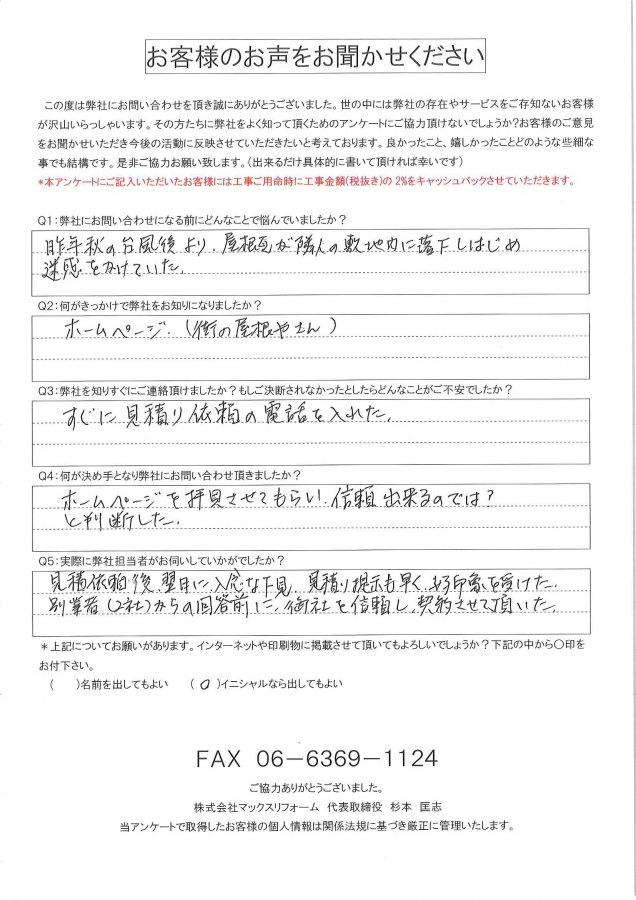 お客様のお声をお聞かせください
この度は弊社にお問い合わせを頂き誠にありがとうございました。世の中には弊社の存在やサービスをご存知ないお客様
が沢山いらっしゃいます。その方たちに弊社をよく知って頂くためのアンケートにご協力頂けないでしょうか？お客様のご意見
をお聞かせいただき今後の活動に反映させていただきたいと考えております。良かったこと、嬉しかったことどのような些細な
事でも結構です。是非ご協力お願い致します。（出来るだけ具体的に書いて頂ければ幸いです）
*本アンケートにご記入いただいたお客様には工事ご用命時に工事金額(税抜き)の 2%をキャッシュバックさせていただきます。
Q1：弊社にお問い合わせになる前にどんなことで悩んでいましたか？
昨年秋の台風後より、屋根瓦が隣人の敷地内に落下しはじめ
迷惑をかけていた。
Q2：何がきっかけで弊社をお知りになりましたか？
ホームページ。（街の屋根やさん）
Q3：弊社を知りすぐにご連絡頂けましたか？もしご決断されなかったとしたらどんなことがご不安でしたか？
すぐに見積り依頼の電話を入れた。
Q4：何が決め手となり弊社にお問い合わせ頂きましたか？
ホームページを拝見させてもらい、信頼出来るのでは？
と判断した。
Q5：実際に弊社担当者がお伺いしていかがでしたか？
見積依頼後、翌日に入念な下見、見積り提示も早く、好印象を受けた。
別業者（2社）からの回答前に、御社を信頼し、契約させて頂いた。
＊上記についてお願いがあります。インターネットや印刷物に掲載させて頂いてもよろしいでしょうか？下記の中から〇印を
お付下さい。
（　）名前を出してもよい　（〇）イニシャルなら出してもよい
FAX 06－6369－1124
ご協力ありがとうございました。
株式会社マックスリフォーム　代表取締役　杉本　匡志
当アンケートで取得したお客様の個人情報は関係法規に基づき厳正に管理いたします。